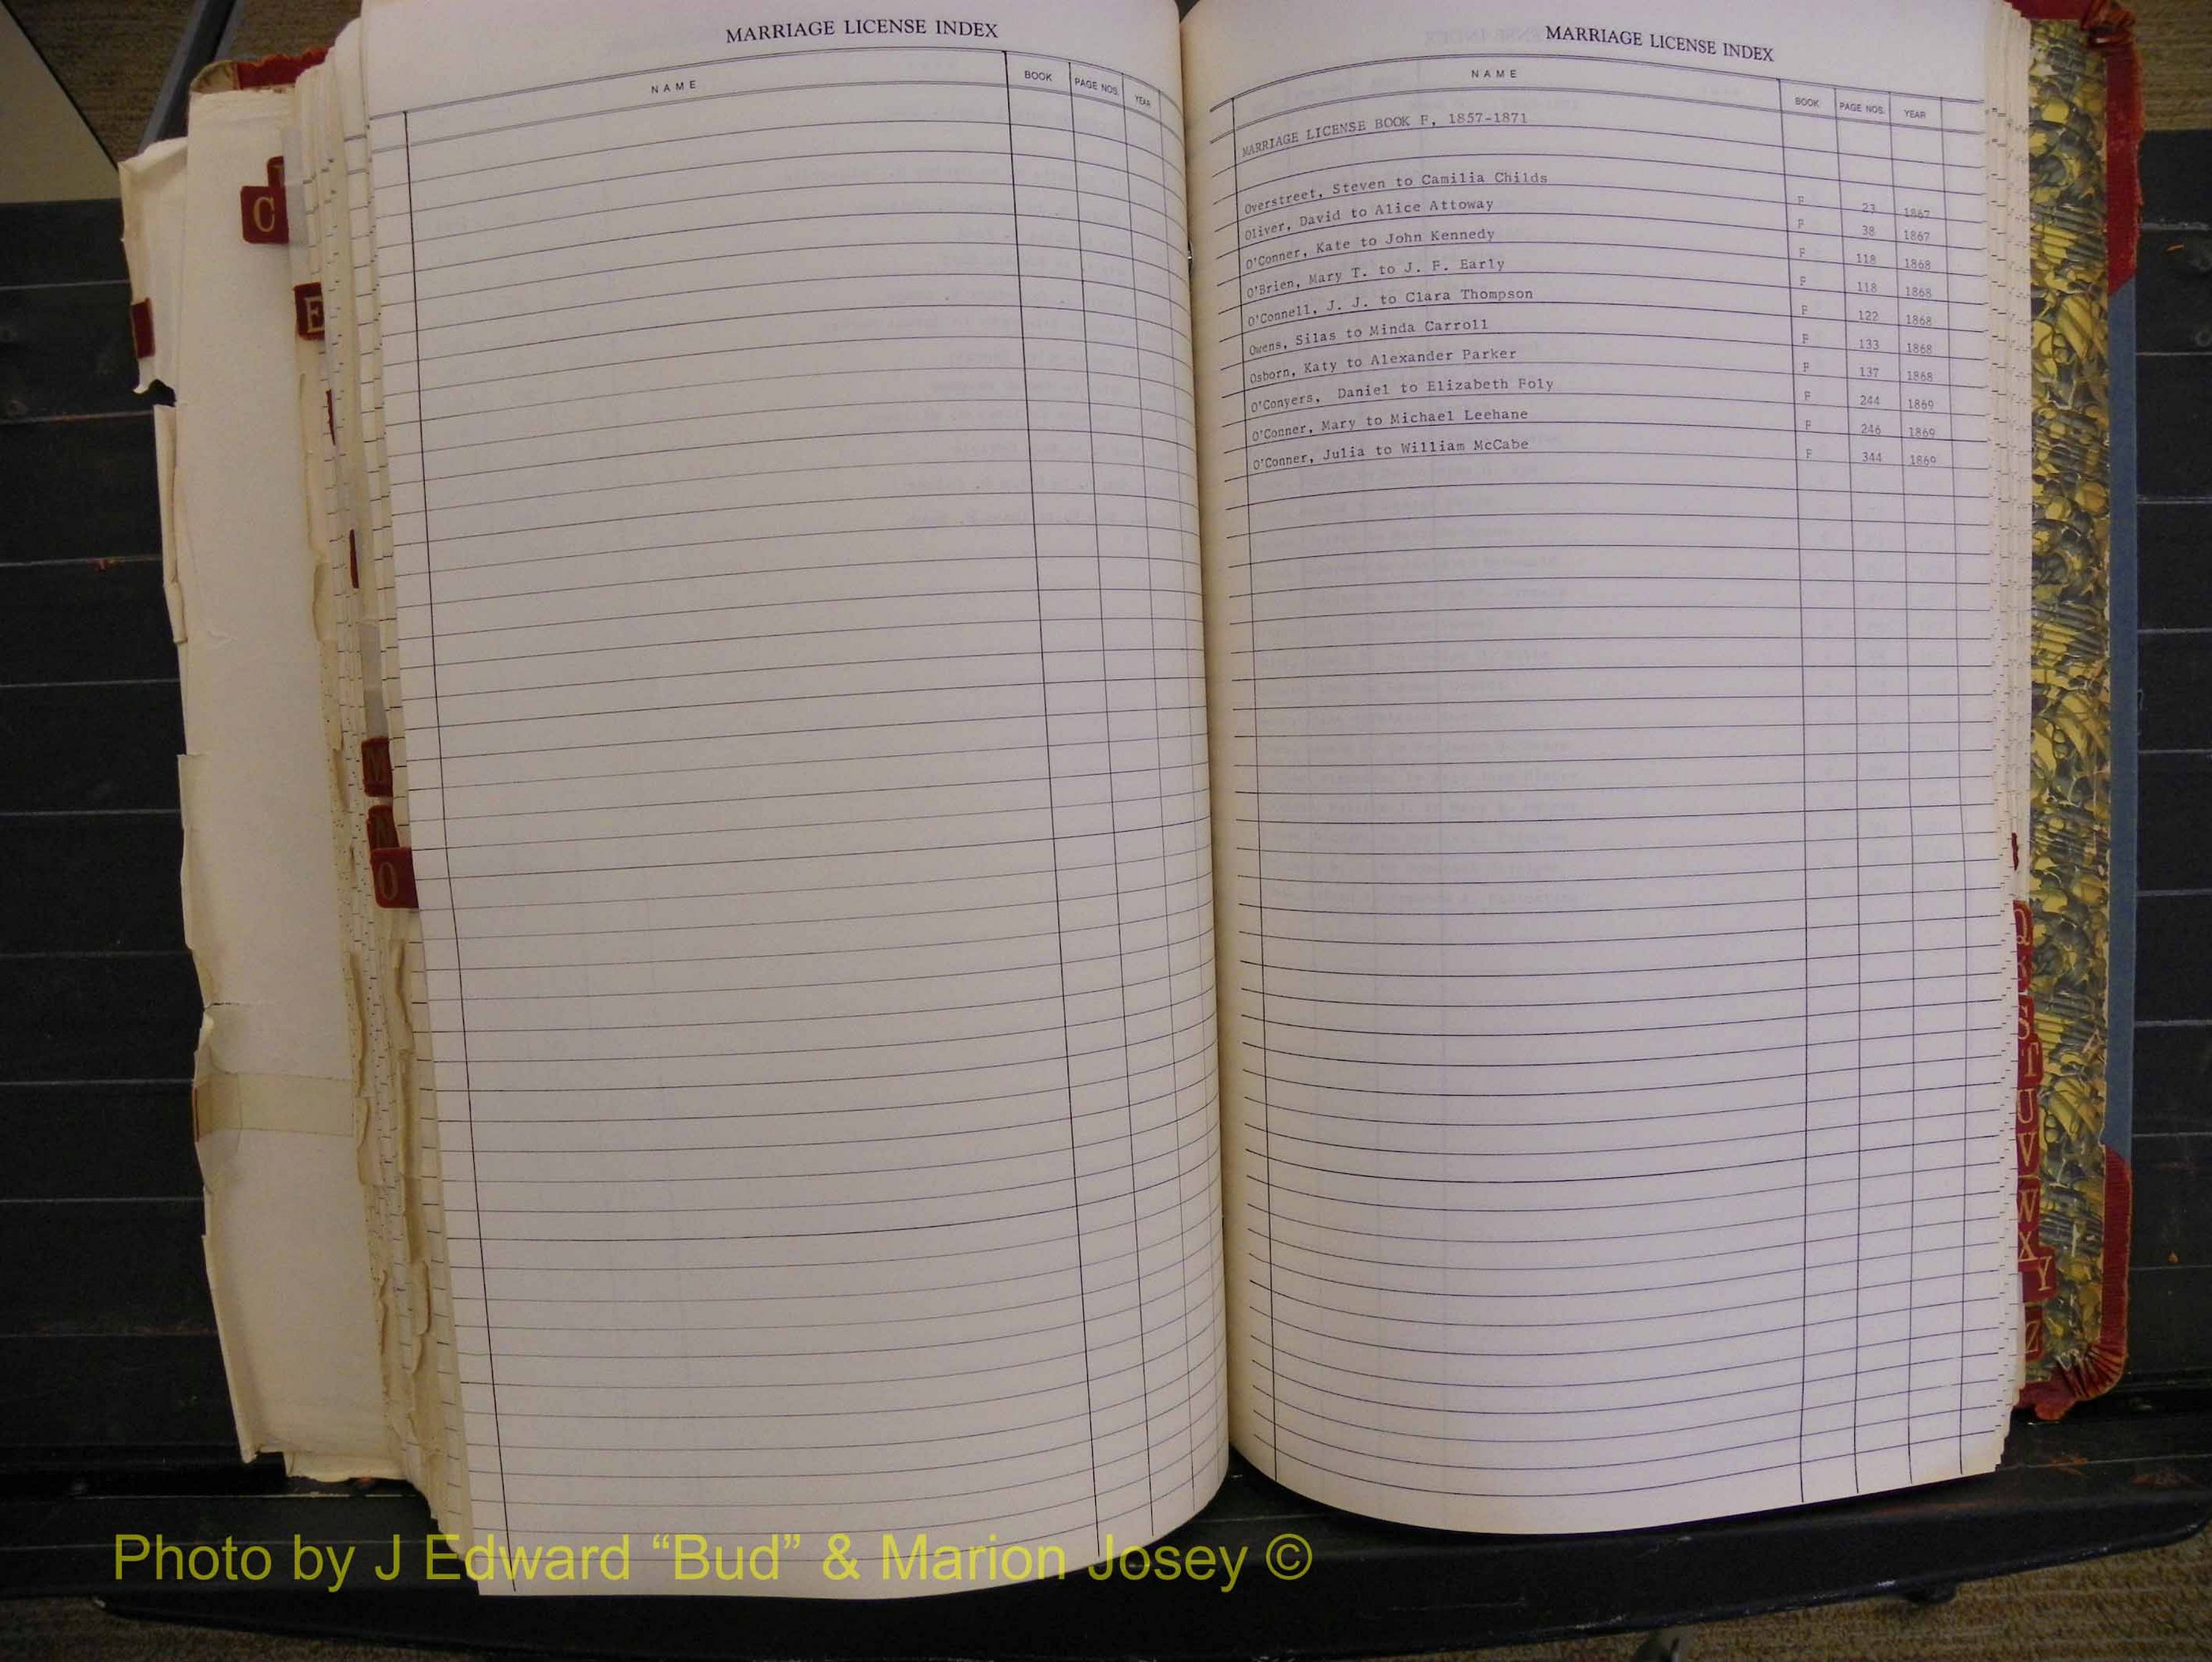 MARRIAGE LICENSE INDEX
NAME BOOK PAGE NOS. YEAR
C
E
M
N
O
MARRIAGE LICENSE INDEX
NAME BOOK PAGE NOS. YEAR
MARRIAGE LICENSE BOOK F, 1857-1871
Overstreet, Steven to Camilia Childs F 23 1867
Oliver, David to Alice Attoway F 38 1867
O'Conner, Kate to John Kennedy F 118 1868
O'Brien, Mary T. to J. F. Early F 118 1868
O'Connell, J. J. to Clara Thompson F 122 1868
Owens, Silas to Minda Carroll F 133 1868
Osborn, Katy to Alexander Parker F 137 1868
O'Conyers, Daniel to Elizabeth Foly F 244 1869
O'Conner, Mary to Michael Leehane F 246 1869
O'Conner, Julia to William McCabe F 344 1869
Q
R
S
T
U
V
W
X
Y
Z
Photo by J Edward “Bud” & Marion Josey ©